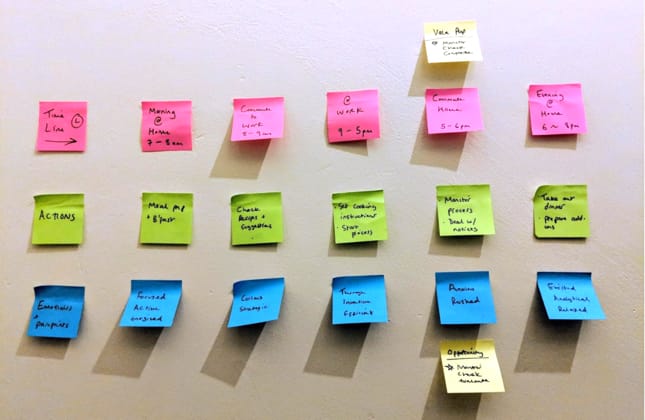 Vala Prop
Monitor
Check
Time
Line
L
Morning
@
Home
7 - 8am
Commute
to
Work
8 - 9am
@
WORK
9 - 5pm
Commute
Home
5 - 6pm
Evening
@
Home
6 - 8pm
ACTIONS
Meal prep
+ B'fast
Check
Recipes +
suggestions
· Set cooking
instructions
· Start
process
· Monitor
process
· Deal w/
notices
· Take out
dinner
· prepare add-
ons
Emotions
+
Focused
Active
Energised
Curious
Strategic
Through
Intention
Efficient
Anxious
Rushed
Excited
Analytical
Relaxed
Opportunity
Monitor
Check